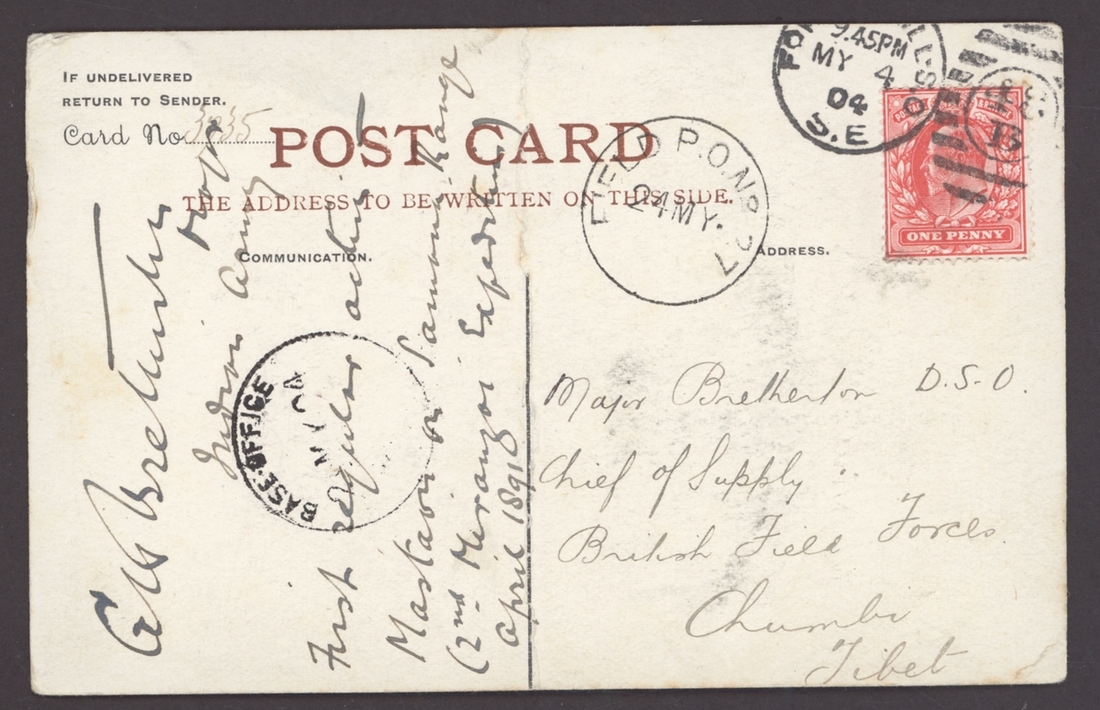 IF UNDELIVERED
RETURN TO SENDER.
Card No. 3035
POST CARD
THE ADDRESS TO BE WRITTEN ON THIS SIDE.
COMMUNICATION.
ADDRESS.
G H Bretherton
Major
Indian Army
First regular action
Mastaon on Samana Range
(2nd Meranzai Expedition)
April 1891
Major Bretherton D.S.O.
Chief of Supply
British Field Forces.
Chumbi
Tibet
FIELD P.O. No.
24 MY.
BASE-OFFICE
MY 04
9.45PM
MY 4
04
S.E
S.O.
ONE PENNY